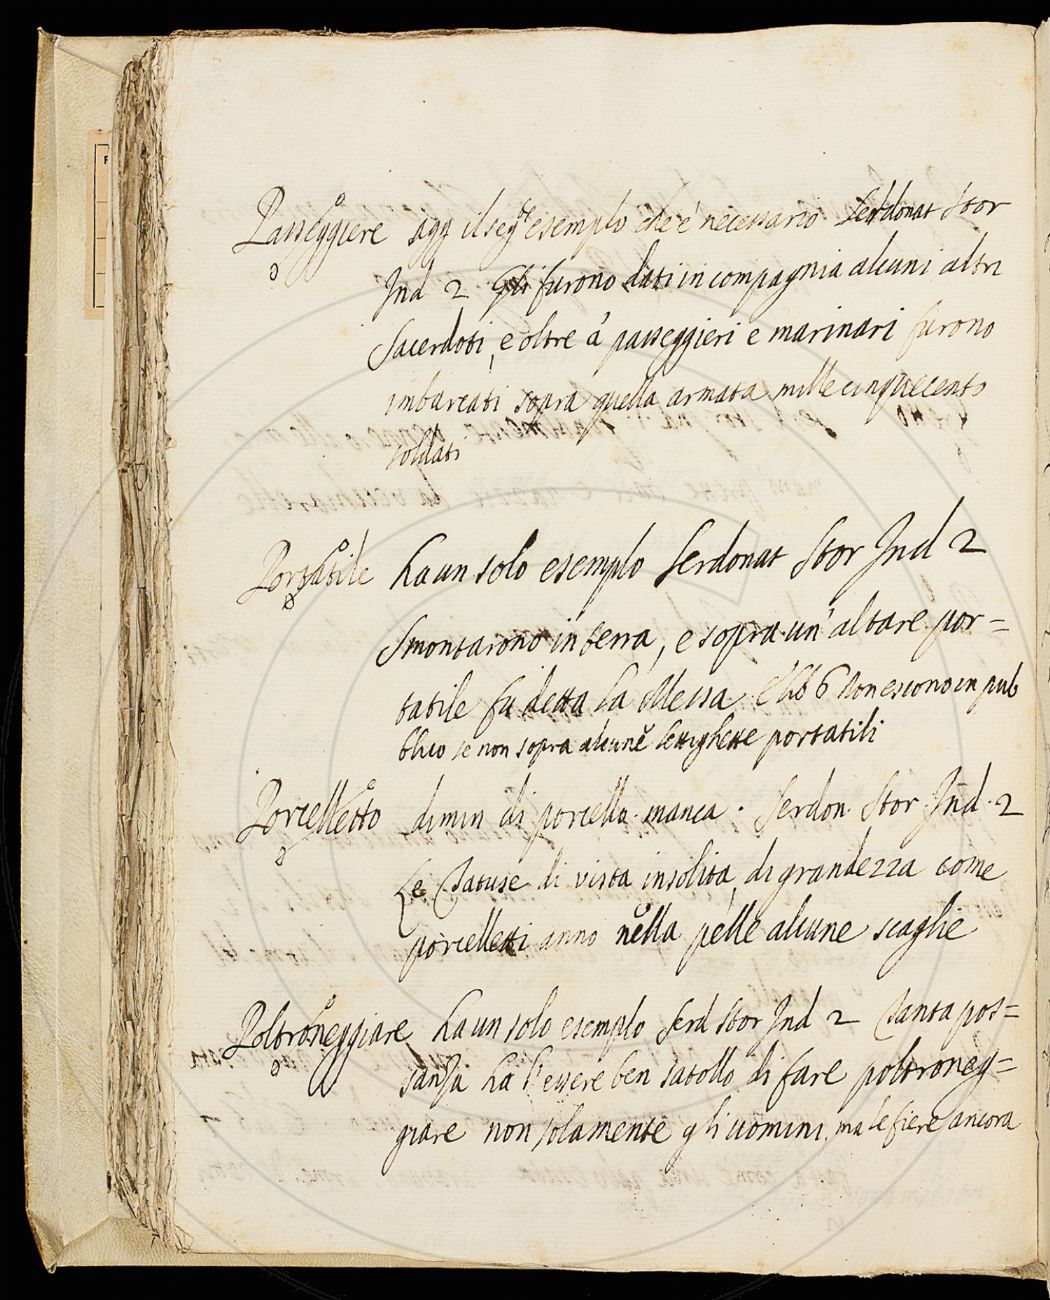 Passeggiere agg il seg.te esemplo che è necessario Serdonat Stor
Ind 2 Gli furono dati in compagnia alcuni altri
Sacerdoti, e oltre a' passeggieri e marinari furono
imbarcati sopra quella armata mille cinquecento
soldati
Portatile ha un solo esemplo Serdonat Stor Ind 2
Smontarono in terra, e sopra un' altare por=
tatile fu detta la Messa. E lib 6 Non escono in pub
blico se non sopra alcune lettighette portatili
Porcelletto dimin di porcello. manca. Serdon. Stor. Ind. 2
Le Tatuse di vista insolita, di grandezza come
porcelletti anno nella pelle alcune scaglie
Poltroneggiare ha un solo esemplo Serd Stor Ind 2 Tanta pos=
sanza ha l'essere ben satollo di fare poltroneg=
giare non solamente gli uomini, ma le fiere ancora